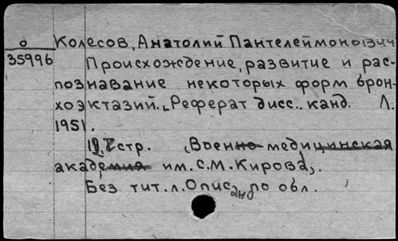 о
35996
Колесов, Анатолий Пантелеймонович
Происхождение, развитие и рас-
познавание некоторых форм брон-
хоэктазий. Реферат дисс.. канд. Л.
1951.
стр. Военно-медицинская
академия им. С.М. Кирова.
Без тит. л. Описано по обл.